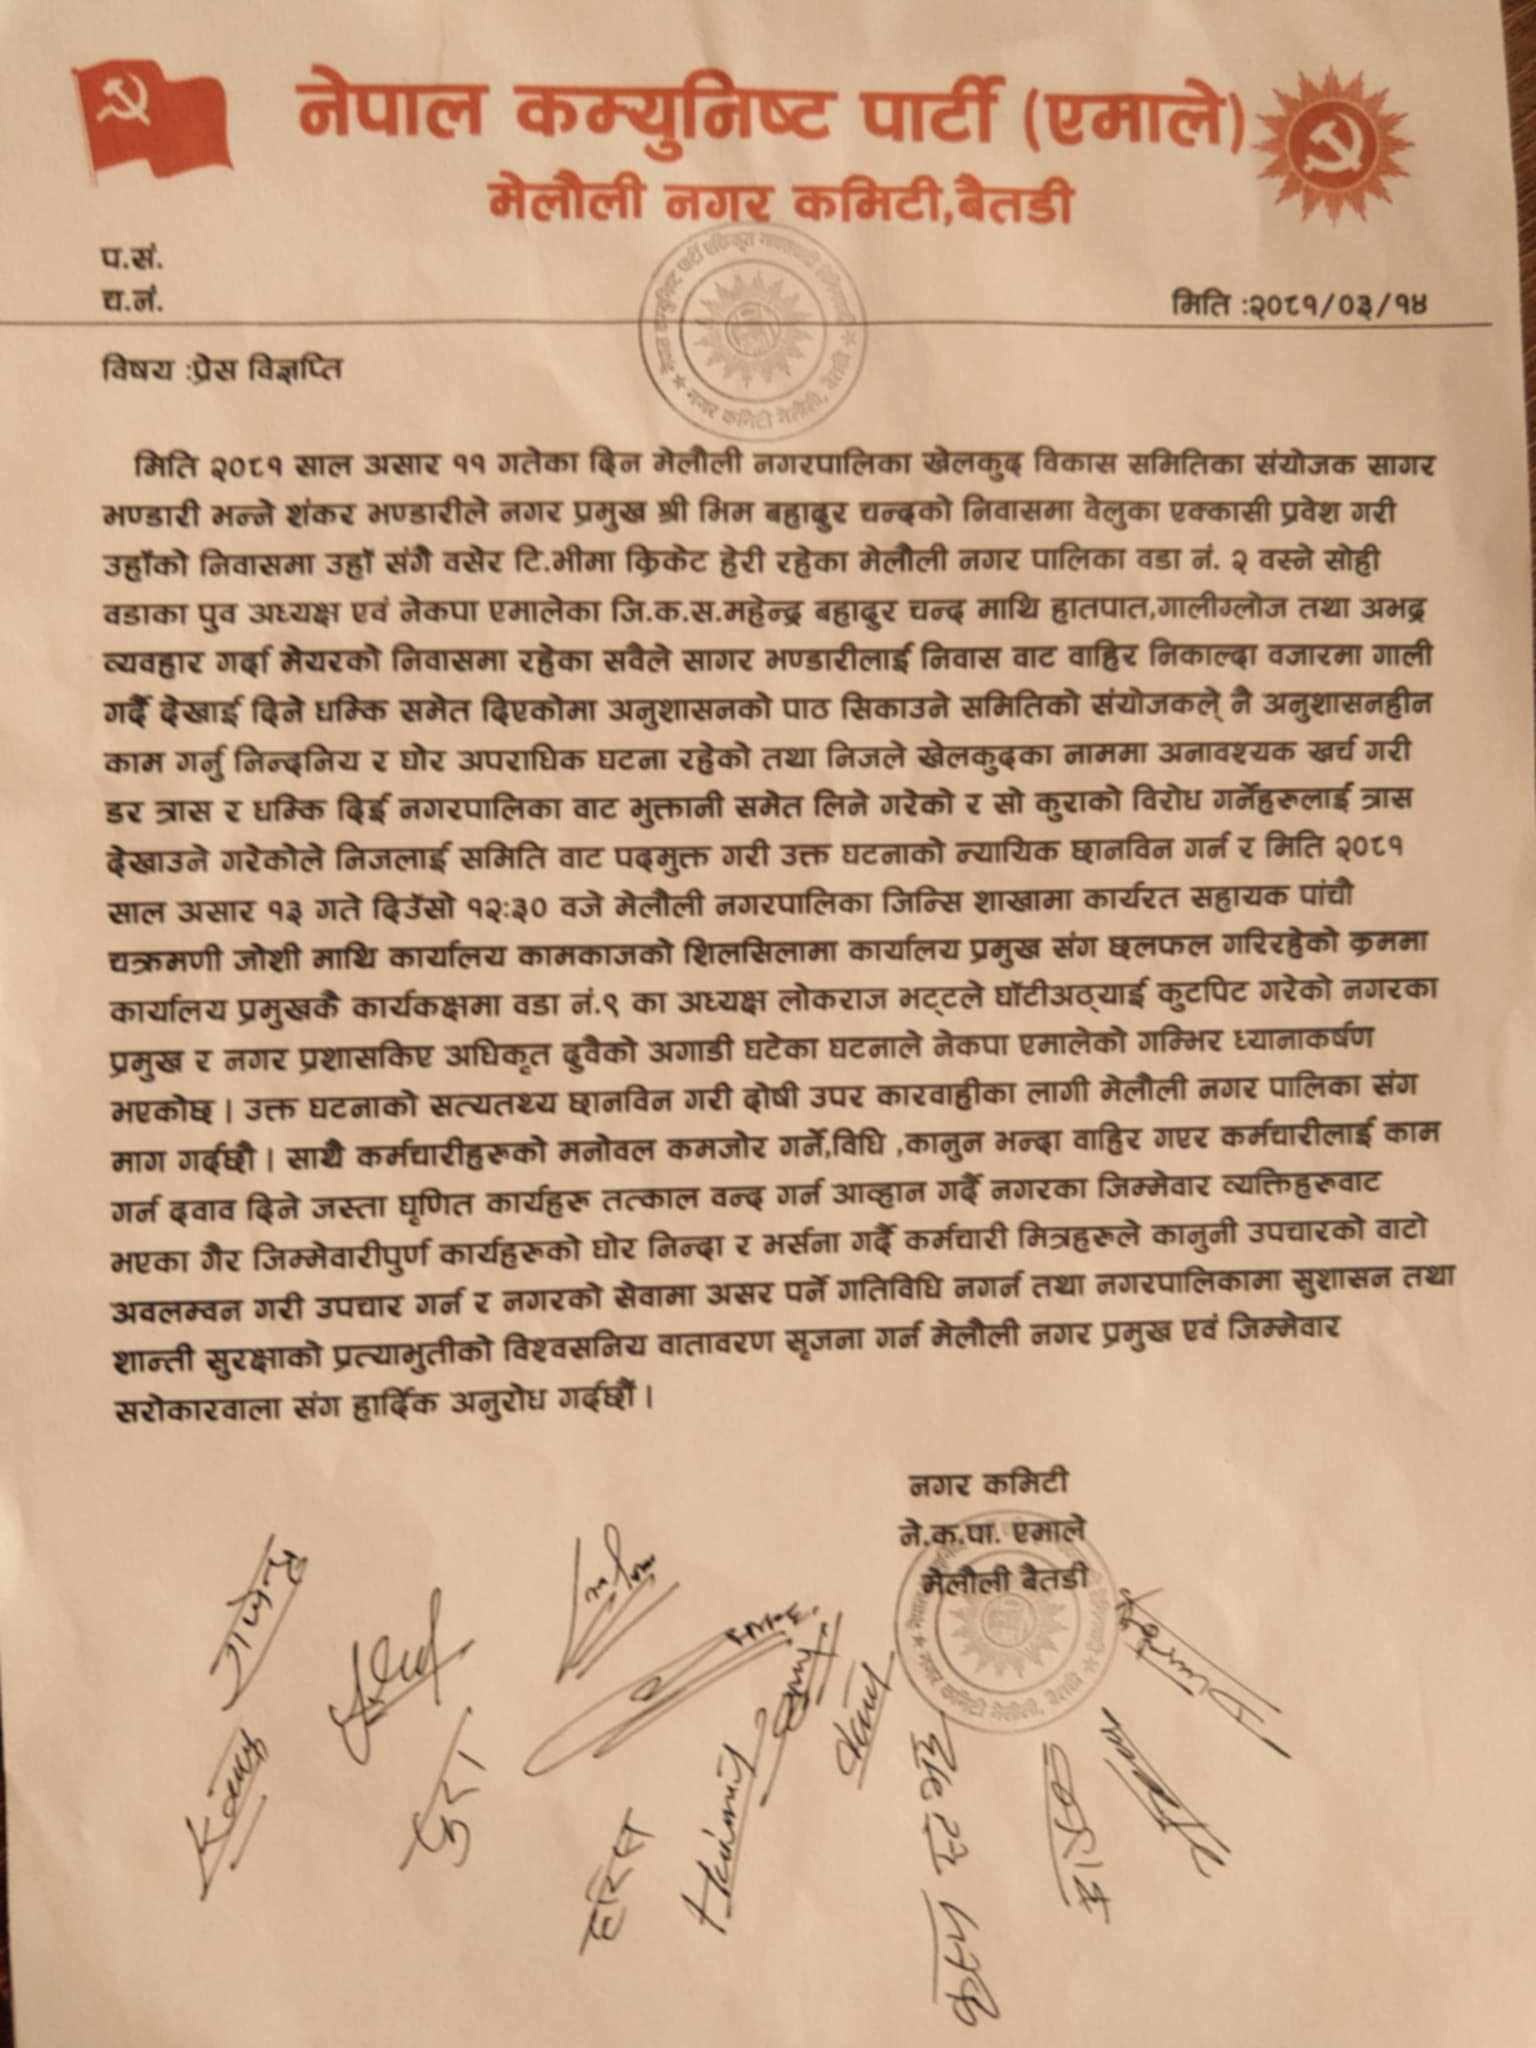 नेपाल कम्युनिष्ट पार्टी (एमाले)
मेलौली नगर कमिटी,बैतडी
प.सं.
च.नं.
मिति :२०८१/०३/१४
विषय :प्रेस विज्ञप्ति
मिति २०८१ साल असार ११ गतेका दिन मेलौली नगरपालिका खेलकुद विकास समितिका संयोजक सागर
भण्डारी भन्ने शंकर भण्डारीले नगर प्रमुख श्री भिम बहादुर चन्दको निवासमा वेलुका एक्कासी प्रवेश गरी
उहाँको निवासमा उहाँ संगै वसेर टि.भीमा क्रिकेट हेरी रहेका मेलौली नगर पालिका वडा नं. २ वस्ने सोही
वडाका पुव अध्यक्ष एवं नेकपा एमालेका जि.क.स.महेन्द्र बहादुर चन्द माथि हातपात,गालीग्लोज तथा अभद्र
व्यवहार गर्दा मेयरको निवासमा रहेका सवैले सागर भण्डारीलाई निवास वाट वाहिर निकाल्दा वजारमा गाली
गर्दै देखाई दिने धम्कि समेत दिएकोमा अनुशासनको पाठ सिकाउने समितिको संयोजकले् नै अनुशासनहीन
काम गर्नु निन्दनिय र घोर अपराधिक घटना रहेको तथा निजले खेलकुदका नाममा अनावश्यक खर्च गरी
डर त्रास र धम्कि दिई नगरपालिका वाट भुक्तानी समेत लिने गरेको र सो कुराको विरोध गर्नेहरूलाई त्रास
देखाउने गरेकोले निजलाई समिति वाट पदमुक्त गरी उक्त घटनाको न्यायिक छानविन गर्न र मिति २०८१
साल असार १३ गते दिउँसो १२:३० वजे मेलौली नगरपालिका जिन्सि शाखामा कार्यरत सहायक पांचौ
चक्रमणी जोशी माथि कार्यालय कामकाजको शिलसिलामा कार्यालय प्रमुख संग छलफल गरिरहेको क्रममा
कार्यालय प्रमुखकै कार्यकक्षमा वडा नं.९ का अध्यक्ष लोकराज भट्टले घाँटीअठ्याई कुटपिट गरेको नगरका
प्रमुख र नगर प्रशासकिए अधिकृत दुवैको अगाडी घटेका घटनाले नेकपा एमालेको गम्भिर ध्यानाकर्षण
भएकोछ । उक्त घटनाको सत्यतथ्य छानविन गरी दोषी उपर कारवाहीका लागी मेलौली नगर पालिका संग
माग गर्दछौ । साथै कर्मचारीहरूको मनोवल कमजोर गर्ने,विधि ,कानुन भन्दा वाहिर गएर कर्मचारीलाई काम
गर्न दवाव दिने जस्ता घृणित कार्यहरू तत्काल वन्द गर्न आव्हान गर्दै नगरका जिम्मेवार व्यक्तिहरूवाट
भएका गैर जिम्मेवारीपुर्ण कार्यहरूको घोर निन्दा र भर्सना गर्दै कर्मचारी मित्रहरूले कानुनी उपचारको वाटो
अवलम्वन गरी उपचार गर्न र नगरको सेवामा असर पर्ने गतिविधि नगर्न तथा नगरपालिकामा सुशासन तथा
शान्ती सुरक्षाको प्रत्याभुतीको विश्वसनिय वातावरण सृजना गर्न मेलौली नगर प्रमुख एवं जिम्मेवार
सरोकारवाला संग हार्दिक अनुरोध गर्दछौं ।
नगर कमिटी
ने.क.पा. एमाले
मेलौली बैतडी
गजेन्द्र